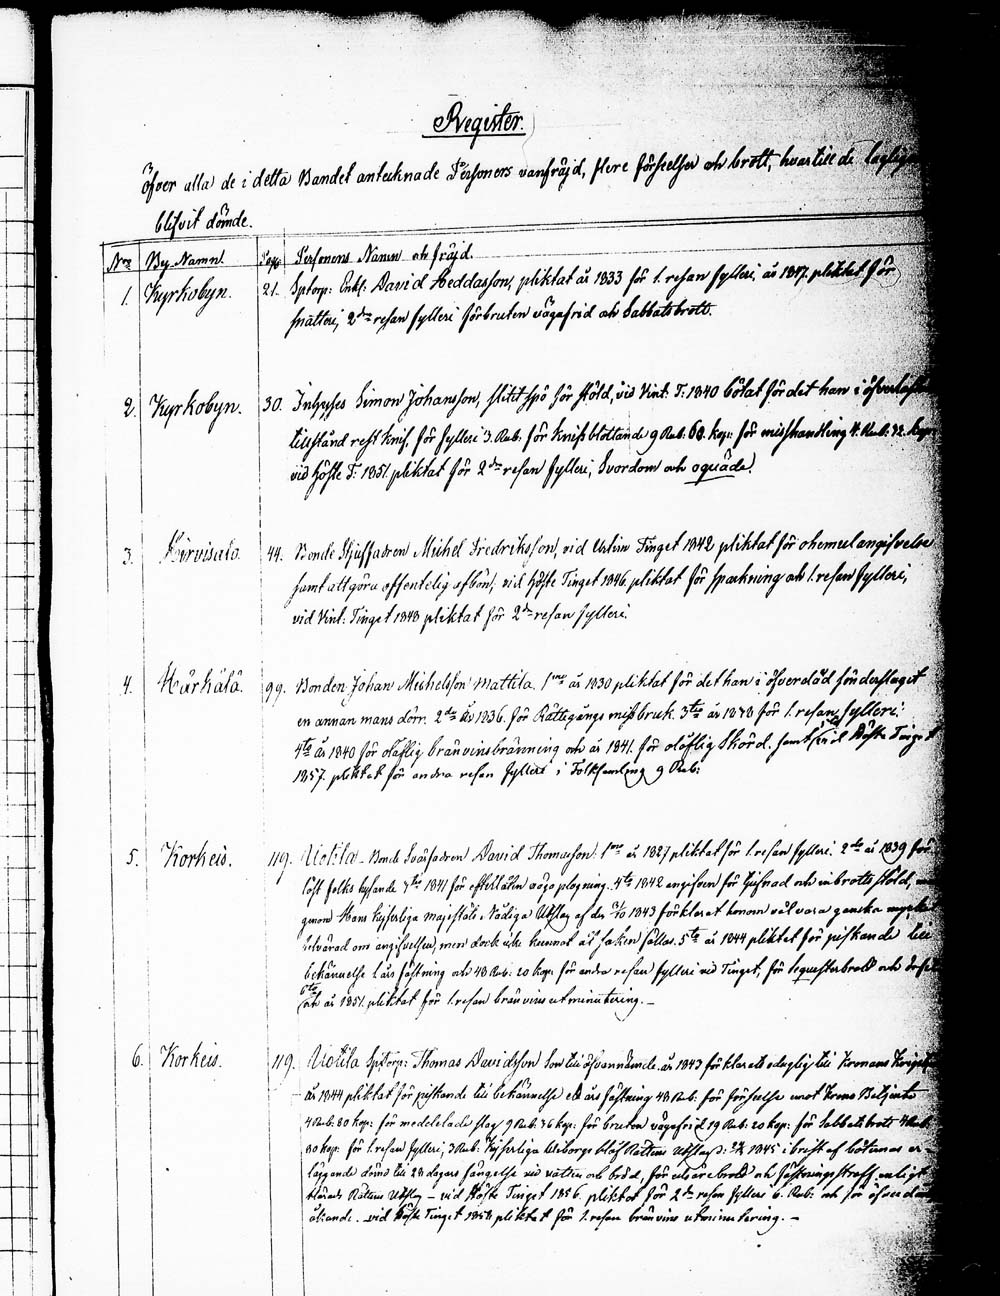 Register.
Öfver alla de i detta Bandet antecknade Personers vanfräjd, flere förseelser och brott, hvartill de
blifvit dömde.
Nro By Namn. Pag. Personens Namn och fräjd.
1. Kyrkobyn. 21. David Heddasson, pliktat år 1833 för 1. resan fylleri, år 1847. pliktat för
snatteri, 2dra resan fylleri förbruten vägafrid och Sabbatsbrott.
2. Kyrkobyn. 30. Inhyses Simon Johansson, slitit spö för stöld, vid Vint: T: 1840 bötat för det han i
tillstånd för fylleri 3. Rub: för knifs blottande 9 Rub: 60. kop: för misshandling 4. Rub:
vid Höste T: 1851. pliktat för 2dra resan fylleri, Svordom och oqväde.
3. Hirvisalo. 44. Bonde Michel Fredriksson, vid Tinget 1842 pliktat för angifvelse
samt att göra offentelig afbön; vid Höste Tinget 1846. pliktat för och 1. resan fylleri,
vid Vint: Tinget 1848 pliktat för 2dra resan fylleri.
4. Härkälä. 99. Bonden Johan Michelsson Mattila. 1mo år 1830 pliktat för det han i öfverdåd sönderslaget
en annan mans dörr. 2do år 1836. för Rättegångs missbruk. 3tio år 1838 för 1. resan fylleri.
4to år 1840 för olaflig bränvinsbränning och år 1841. för olaflig Skörd. samt vid Höste Tinget
1857. pliktat för andra resan fylleri i Folksamling 9 Rub:
5. Korkeis. 119. Uotila. Bonde Svärfadren David Thomasson. 1mo år 1827 pliktat för 1. resan fylleri. 2do år 1839 för
löst folks hysande 3tio 1841 för efterlåten väga plogning. 4to 1842 angifven för tjufnad och inbrotts stöld,
genom Hans kejserliga majestäts Nådiga Utslag af den 1843 förklarat honom väl vara ganska
om angifvelsen, men dock icke kunnat till saken fällas. 5to år 1844 pliktat för till
bekännelse 1 års fästning och 48 Rub: 20 kop: för andra resan fylleri vid Tinget, för och
6to och år 1851. pliktat för 1. resan bränvins utminutering. –
6. Korkeis. 119. Uotila Thomas Davidsson Son till ofvannämde. år 1843 förklarats till Kronans
år 1844 pliktat för till bekännelse ett års fästning 48 Rub: för förseelse emot Krono Betjente
4 Rub: 80 kop: för meddelade slag 9 Rub: 36 kop: för bruten vägafrid 19 Rub: 20 kop: för Sabbatsbrott 4 Rub:
80 kop: för 1. resan fylleri, 3 Rub: Kejserliga Wiborgs Hof Rättens Utslag: 1845 i brist af böternas er-
läggande dömd till 28 dagars fängelse vid vatten och bröd, för och fästningsstraff enligt
Rättens Utslag – vid Höste Tinget 1856. pliktat för 2dra resan fylleri 6 Rub: och för
åkande. – vid Höste Tinget 1858 pliktat för 1. resan bränvins utminutering. –